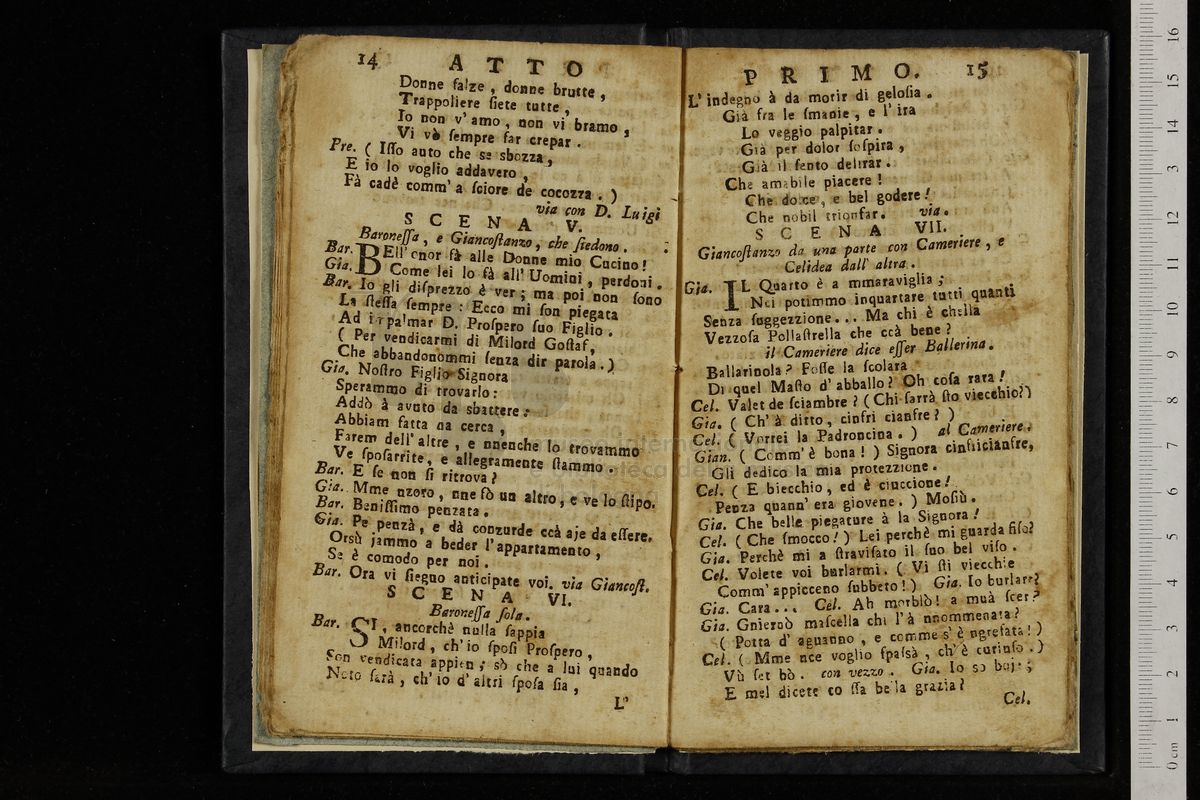 14 ATTO
Donne falze, donne brutte,
Trappoliere siete tutte,
Io non v'amo, non vi bramo,
Vi vò sempre far crepar.
Pre. ( Isso auto che se sbozza,
E io lo voglio addavero,
Fà cadè comm'a sciore de cocozza. )
via con D. Luigi
SCENA V.
Baronessa, e Giancostanzo, che siedono.
Bar. BEll'onor fà alle Donne mio Cucino!
Gia. Come lei lo fà all'Uomini, perdoni.
Bar. Io gli disprezzo è ver; ma poi non sono
La stessa sempre: Ecco mi son piegata
Ad impalmar D. Prospero suo Figlio.
( Per vendicarmi di Milord Gostaf,
Che abbandonommi senza dir parola. )
Gia. Nostro Figlio Signora
Sperammo di trovarlo:
Addò à avuto da sbattere:
Abbiam fatta na cerca,
Farem dell'altre, e nnenche lo trovammo
Ve sposarrite, e allegramente stammo.
Bar. E se non si ritrova?
Gia. Mme nzoro, nne fò un altro, e ve lo stipo.
Bar. Benissimo penzata.
Gia. Pe penzà, e dà conzurde ccà aje da essere.
Orsù jammo a beder l'appartamento,
Se è comodo per noi.
Bar. Ora vi sieguo anticipate voi. via Giancost.
SCENA VI.
Baronessa sola.
Bar. SI, ancorchè nulla sappia
Milord, ch'io sposi Prospero,
Son vendicata appien; sò che a lui quando
Noto sarà, ch'io d'altri sposa sia,
L'
PRIMO. 15
L'indegno à da morir di gelosia.
Già fra le smanie, e l'ira
Lo veggio palpitar.
Già per dolor sospira,
Già il sento delirar.
Che amabile piacere!
Che dolce, e bel godere!
Che nobil trionfar. via.
SCENA VII.
Giancostanzo da una parte con Cameriere, e
Celidea dall'altra.
Gia. IL Quarto è a mmaraviglia;
Nci potimmo inquartare tutti quanti
Senza suggezzione... Ma chi è chella
Vezzosa Pollastrella che ccà bene?
il Cameriere dice esser Ballerina.
Ballarinola? Fosse la scolara
Di quel Masto d'abballo? Oh cosa rara!
Cel. Valet de sciambre? ( Chi sarrà sto viecchio? )
Gia. ( Ch'à ditto, cinfri cianfre? )
Cel. ( Vorrei la Padroncina. ) al Cameriere.
Gian. ( Comm'è bona! ) Signora cinfricianfre,
Gli dedico la mia protezzione.
Cel. ( E biecchio, ed è ciuccione!
Penza quann'era giovene. ) Mosiù.
Gia. Che belle piegature à la Signora!
Cel. ( Che smocco! ) Lei perchè mi guarda fiso?
Gia. Perchè mi a stravisato il suo bel viso.
Cel. Volete voi burlarmi. ( Vi sti viecchie
Comm'appicceno subbeto! ) Gia. Io burlare?
Gia. Cara... Cel. Ah morbiò! a muà scer?
Gia. Gniernò mascella chi l'à nnommenata?
( Potta d'aguanno, e comme s'è ngresata! )
Cel. ( Mme nce voglio spassà, ch'è curiuso. )
Vù set bò. con vezzo. Gia. Io so boje;
E mel dicete co ssa bella grazia?
Cel.